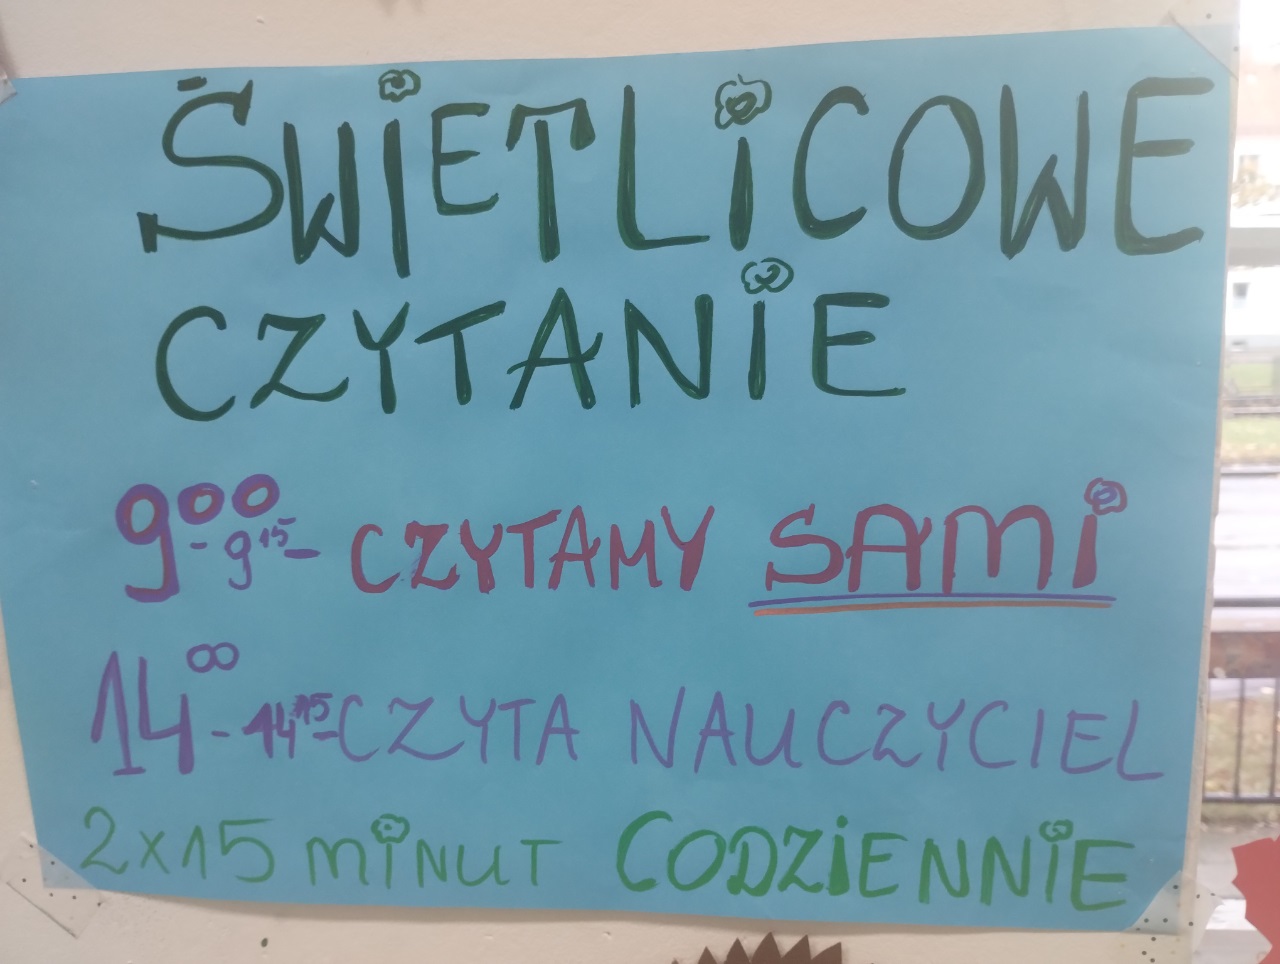 ŚWIETLICOWE
CZYTANIE
9⁰⁰ - 9¹⁵ - CZYTAMY SAMI
14⁰⁰ - 14¹⁵ - CZYTA NAUCZYCIEL
2x15 MINUT CODZIENNIE